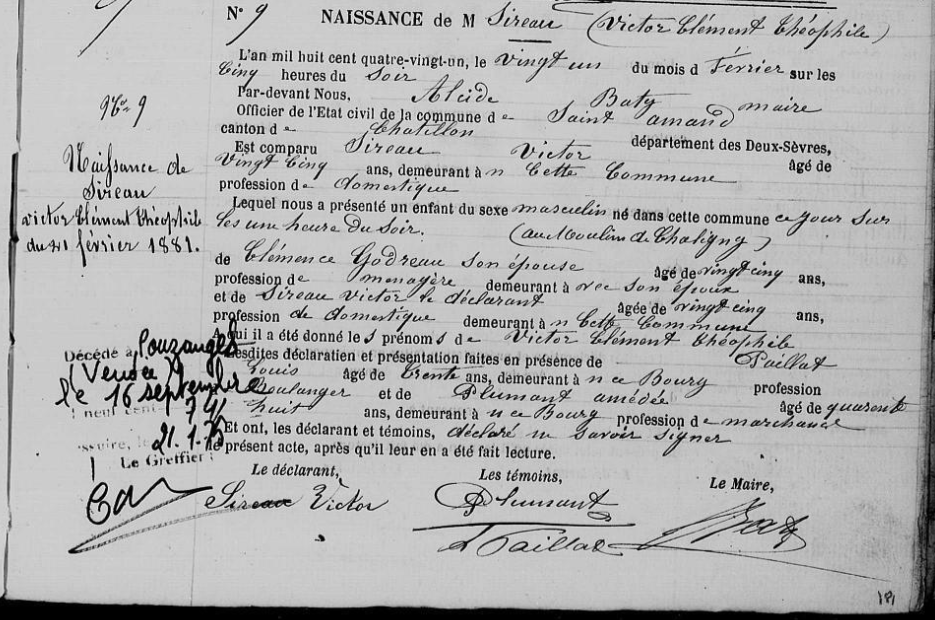 N° 9 NAISSANCE de M Sireau (Victor Clément Théophile)
L'an mil huit cent quatre-vingt-un, le vingt un du mois d Février sur les
Cinq heures du Soir
Par-devant Nous, Alcide Baty maire
Officier de l'Etat civil de la commune de Saint Amand
canton de Chatillon département des Deux-Sèvres,
Est comparu Sireau Victor âgé de
Vingt Cinq ans, demeurant à n Cette Commune
profession de domestique
Lequel nous a présenté un enfant du sexe masculin né dans cette commune ce jour sur
les une heure du Soir. (au Moulin de Chaligny)
de Clémence Godreau Son épouse âgé de vingt cinq ans,
profession de menagère demeurant à vec son époux
et de Sireau Victor le déclarant âgée de vingt cinq ans,
profession de domestique demeurant à n Cette Commune
A qui il a été donné le s prénoms de Victor Clément Théophile
Lesdites déclaration et présentation faites en présence de Paillat
Louis âgé de trente ans, demeurant à n ce Bourg profession
Boulanger et de Plumant amédée âgé de quarente
huit ans, demeurant à n ce Bourg profession de marchand
Et ont, les déclarant et témoins, déclaré
savoir signer
le présent acte, après qu'il leur en a été fait lecture.
Le déclarant, Les témoins, Le Maire,
Sireau Victor Plumant Baty
L Paillat
N° 9
Naissance de
Sireau
Victor Clément Théophile
du 21 février 1881.
Décédé à Pouzauges
(Vendée)
le 16 septembre
neuf cent 74
ssuire, le 21.1.75
Le Greffier
181